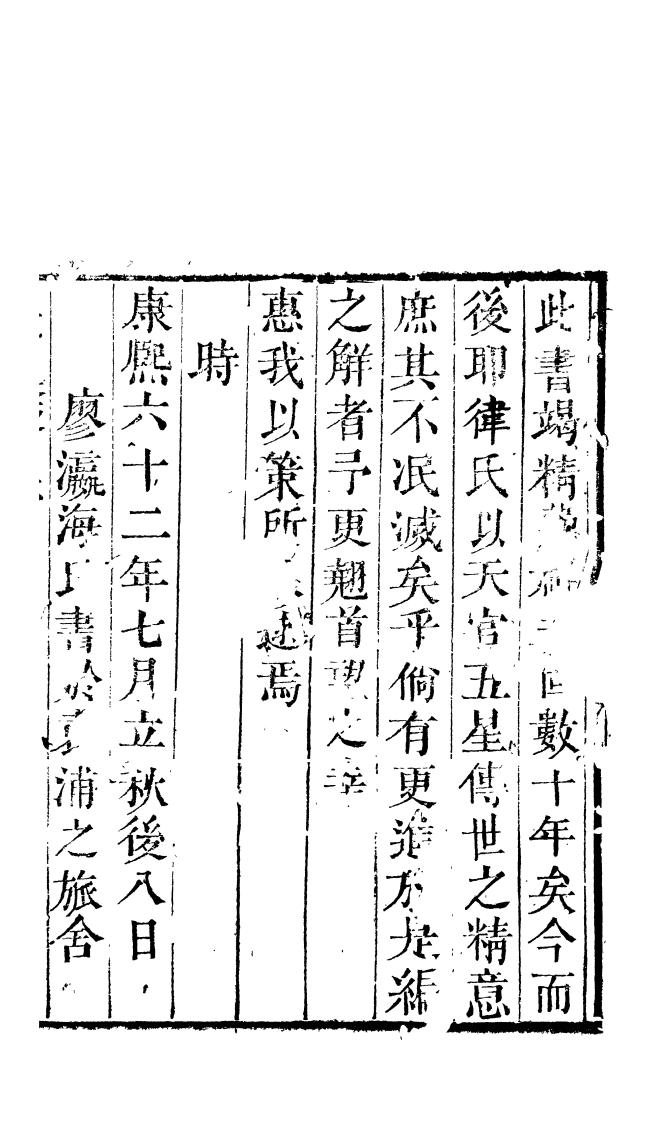 此書竭精數十年矣今而
後耶律氏以天官五星傳世之精意
庶其不冺滅矣乎倘有更進於是編
之觧者予更翹首望之幸
惠我以策所逮焉
時
康熙六十二年七月立秋後八日
廖瀛海氏書於浦之旅舍